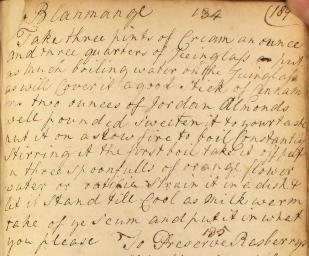 Blanmange 134 (187
Take three pints of Cream an ounce
and three quarters of Iseinglass put
as much boiling water on the Iseinglass
as will Cover it a good Stick of
two ounces of Jordan Almonds
well pounded Sweeten it to your taste
put it on a slow fire to boil Constantly
Stirring it the first boil take it off put
in three Spoonfulls of orange flower
water or ratifia Strain it in a dish &
let it Stand till Cool as milk warm
take of ye Scum and put it in what
you please 135 To Preserve Rasberrys